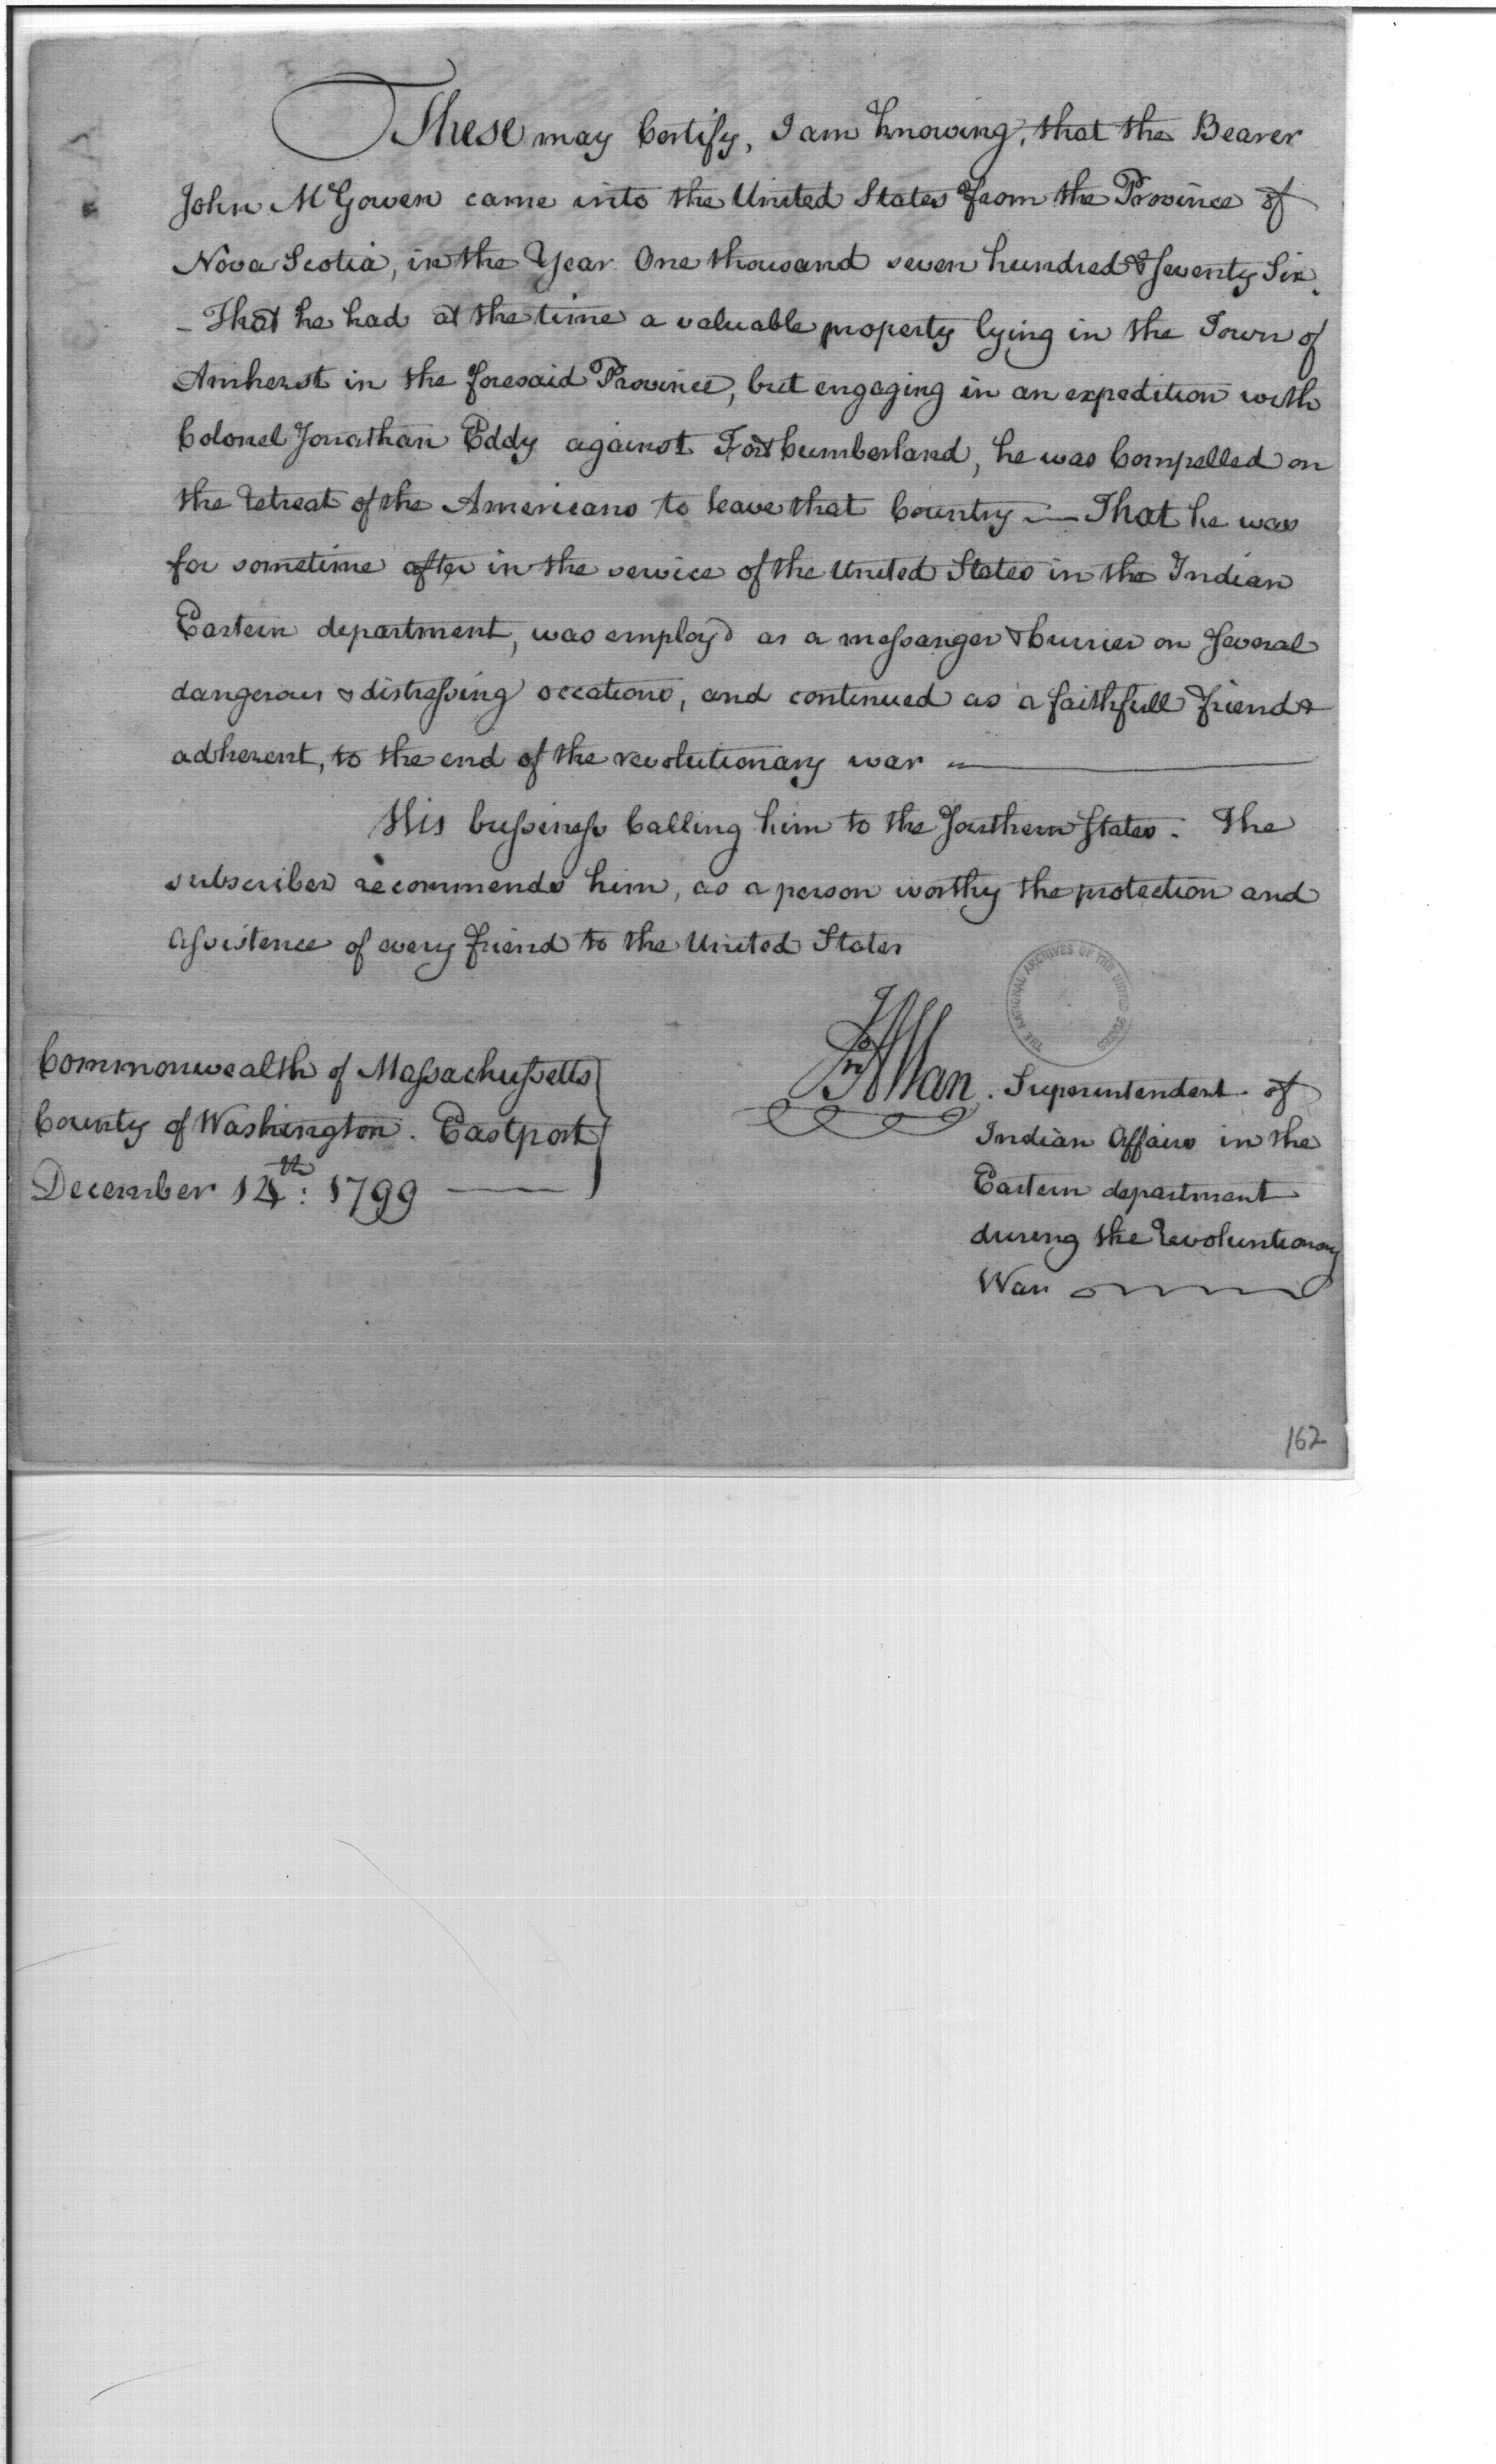 These may Certify, I am knowing, that the Bearer
John McGowen came into the United States from the Province of
Nova Scotia, in the Year One thousand seven hundred & seventy Six.
- That he had at the time a valuable property lying in the Town of
Amherst in the foresaid Province, but engaging in an expedition with
Colonel Jonathan Eddy against Fort Cumberland, he was Compelled on
the retreat of the Americans to leave that Country — That he was
for sometime after in the service of the United States in the Indian
Eastern department, was employd as a messanger & Currier on several
dangerous & distressing occations, and continued as a faithfull friend &
adherent, to the end of the revolutionary war —
His bussiness Calling him to the Southern States. The
subscriber recommends him, as a person worthy the protection and
assistence of every friend to the United States
THE NATIONAL ARCHIVES OF THE UNITED STATES
Jno Allan. Superintendent of
Indian Affairs in the
Eastern department
during the revoluntionary
War
Commonwealth of Massachussetts
County of Washington. Eastport
December 14th: 1799 —
162